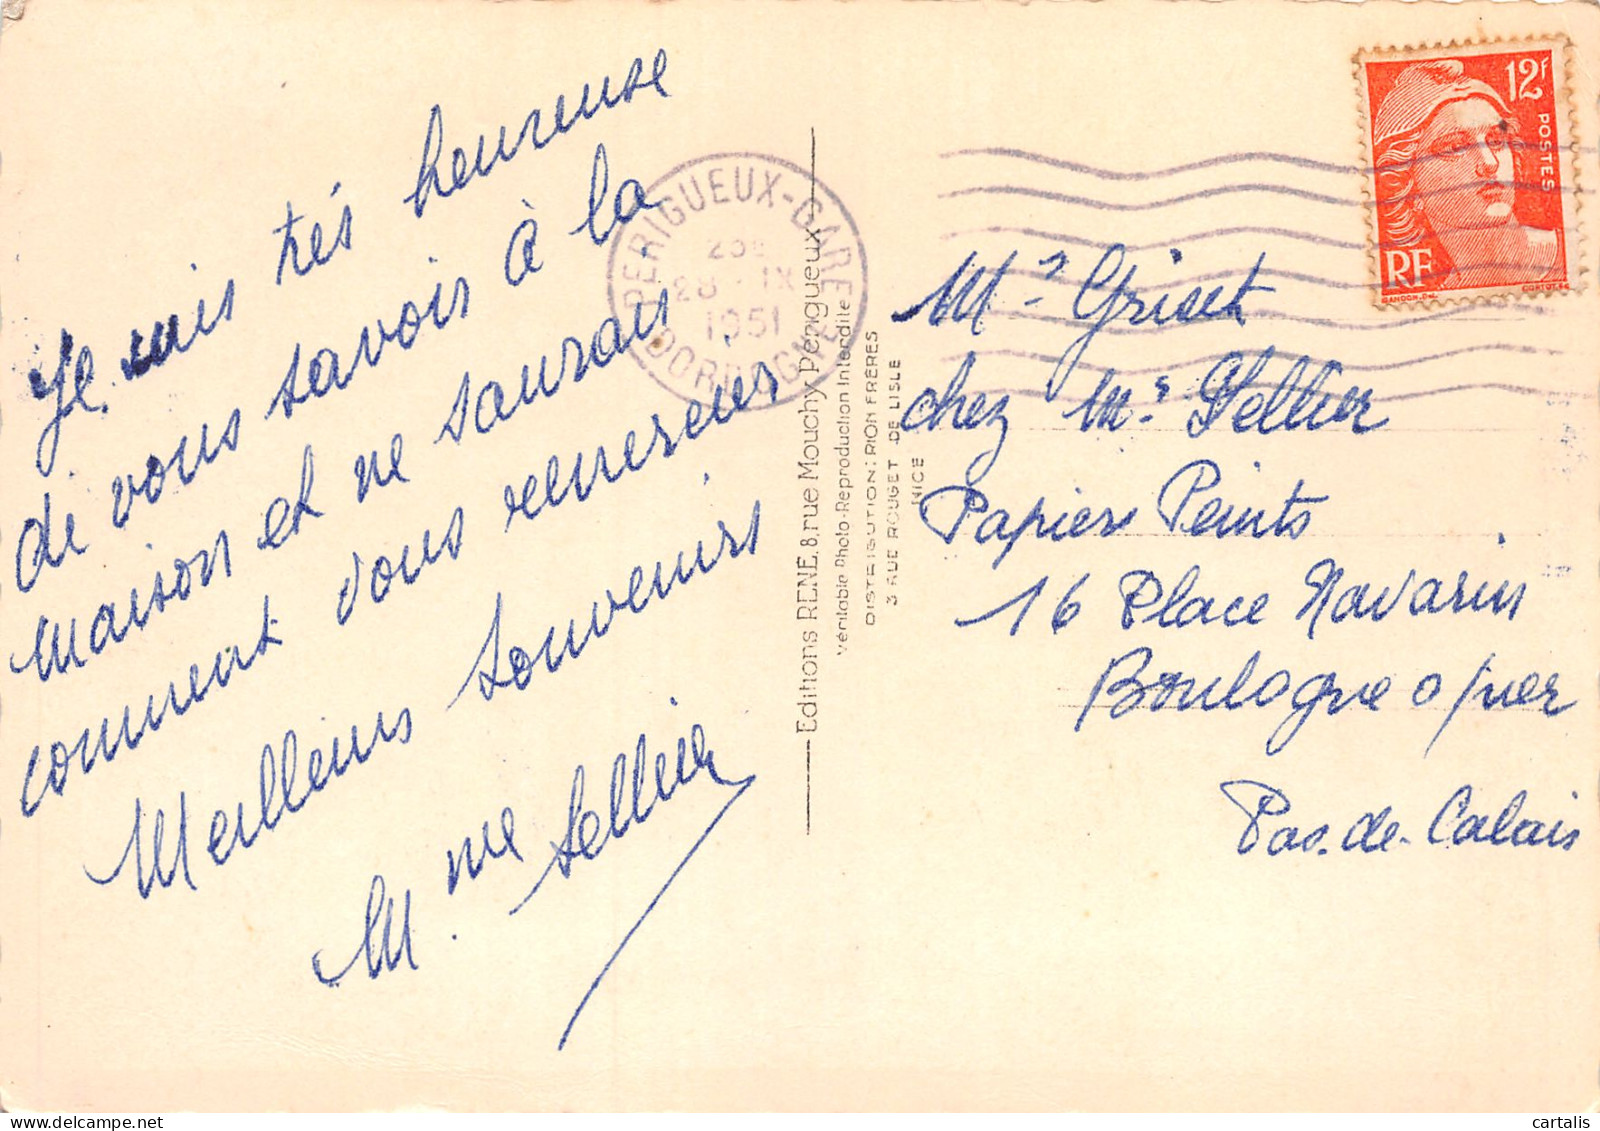 Je suis très heureuse
de vous savoir à la
maison et ne saurais
comment vous remercier
Meilleurs Souvenirs
Mme Sellier
PERIGUEUX-GARE
28 - IX
1951
DORDOGNE
Editions RENE, 8, rue Mouchy Perigueux
Véritable Photo-Reproduction Interdite
DISTRIBUTION: RION FRÈRES
3 RUE ROUGET DE LISLE
NICE
12f
POSTES
RF
GANDON. DEL.
CORTOT. SC
Mr Griset
chez Mr Sellier
Papiers Peints
16 Place Navarin
Boulogne s/mer
Pas-de-Calais
cartalis
delcampe.net